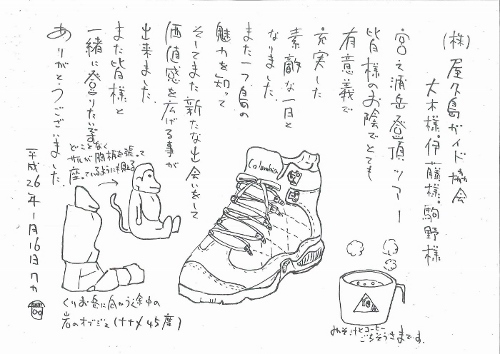 (株)屋久島ガイド協会
大木様。伊藤様。駒野様
宮之浦岳登頂ツアー
皆様のお陰でとても
有意義で
充実した
素敵な一日と
なりました。
また一つ島の
魅力を知って
そしてまた新たな出会いをして
価値感を広げる事が
出来ました。
また皆様と
一緒に登りたいです
ありがとうございました。
平成26年1月16日
どことなく
サルが腕を張って
座っているようにも見える
Columbia
くりお岳に向かう途中の
岩のオブジェ(ナナメ45度)
コーヒー
ごちそうさまです。